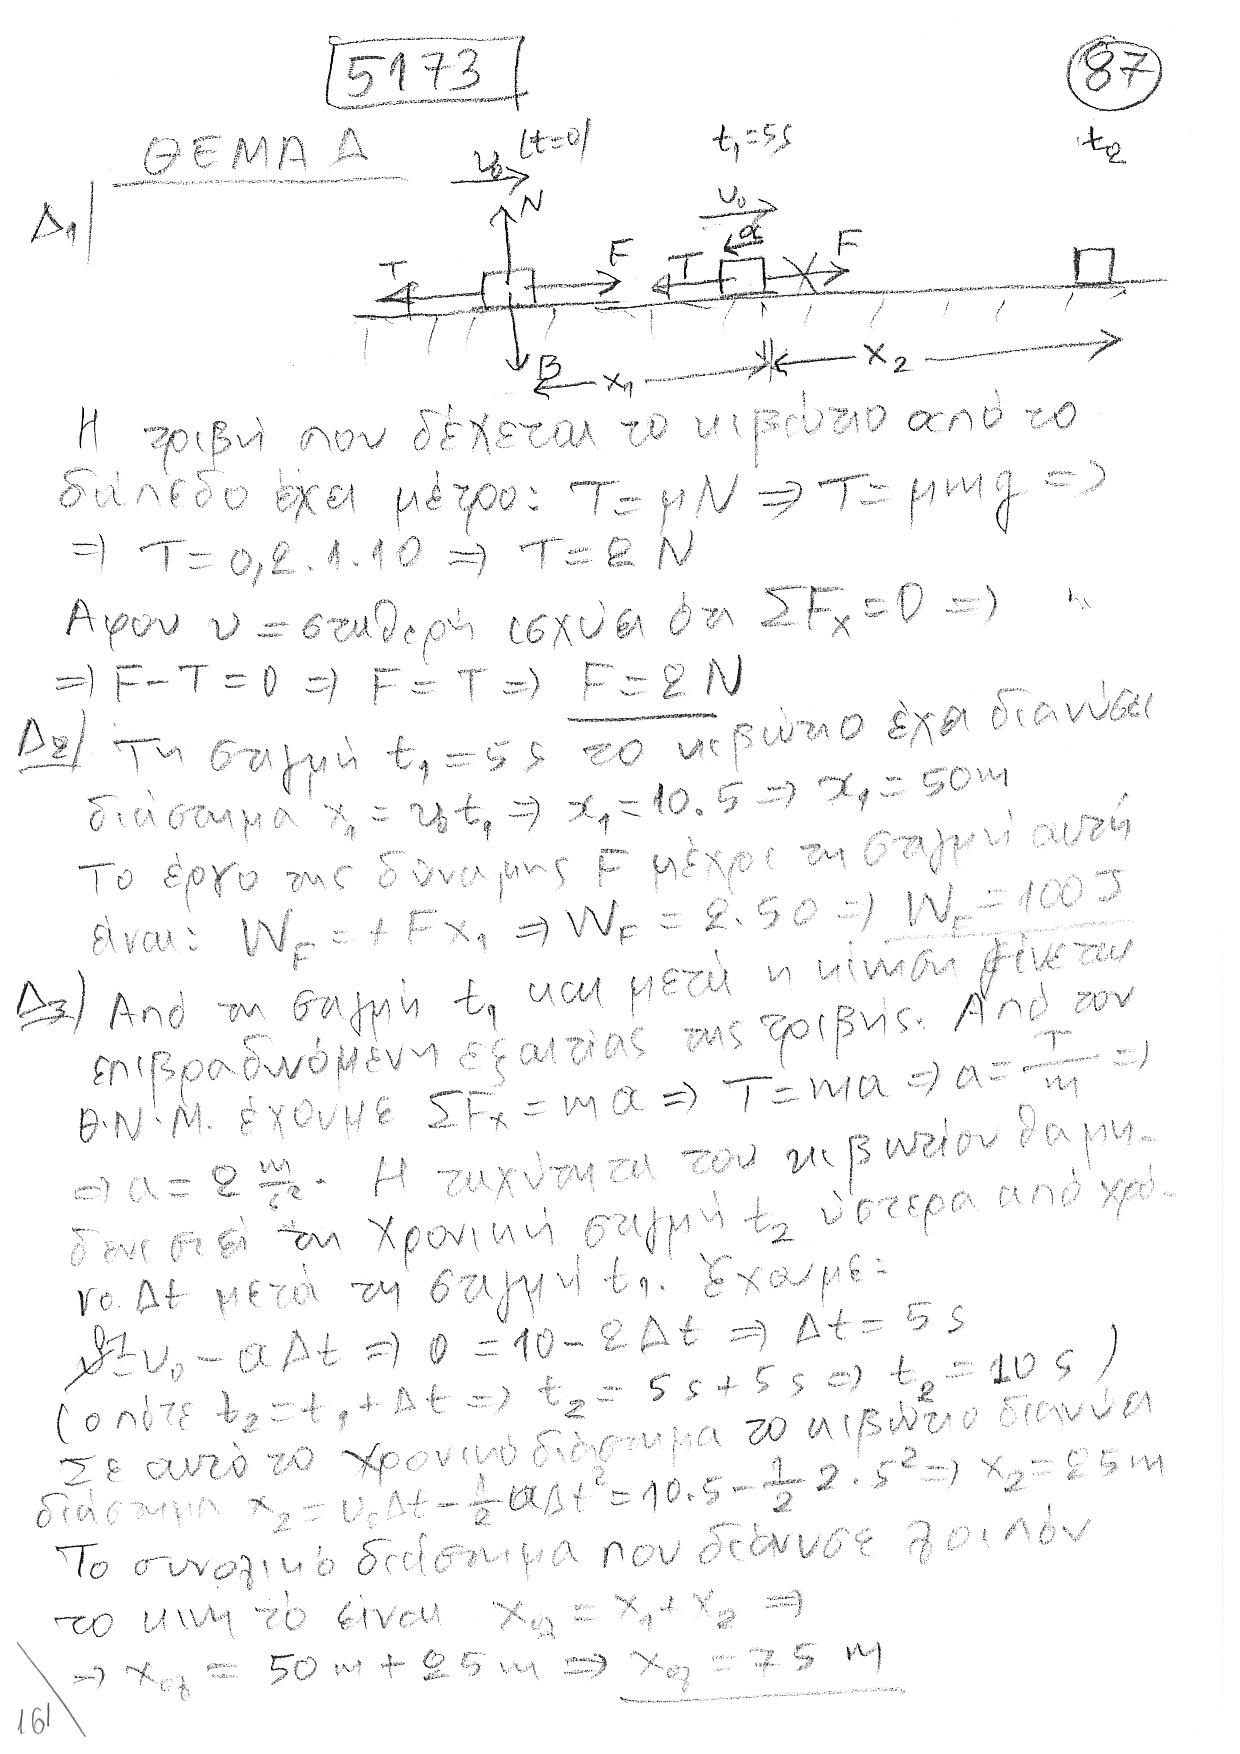 5173
87
ΘΕΜΑ Δ
Δ1)
υ0 (t=0)
t1=5s
t2
N
T
F
B
υ0
α
T
F
x1
x2
Η τριβή που δέχεται το κιβώτιο από το
δάπεδο έχει μέτρο: T=μN ⇒ T=μmg ⇒
⇒ T=0,2.1.10 ⇒ T=2N
Αφου υ=σταθερή ισχύει ότι ΣFx=0 ⇒
⇒ F-T=0 ⇒ F=T ⇒ F=2N
Δ2) Τη στιγμή t1=5s το κιβώτιο έχει διανύσει
διάστημα x1=υ0t1 ⇒ x1=10.5 ⇒ x1=50m
Το έργο της δύναμης F μέχρι τη στιγμή αυτή
είναι: WF=+Fx1 ⇒ WF=2.50 ⇒ WF=100J
Δ3) Από τη στιγμή t1 και μετά η κίνηση γίνεται
επιβραδυνόμενη εξαιτίας της τριβής. Από τον
Θ.Ν.Μ. έχουμε ΣFx=mα ⇒ T=mα ⇒ α=T/m ⇒
⇒ α=2 m/s². Η ταχύτητα του κιβωτίου θα μη-
δενιστεί τη χρονική στιγμή t2 ύστερα από χρό-
νο Δt μετά τη στιγμή t1. Έχουμε:
υ=υ0-αΔt ⇒ 0=10-2Δt ⇒ Δt=5s
(οπότε t2=t1+Δt ⇒ t2=5s+5s ⇒ t2=10s)
Σε αυτό το χρονικό διάστημα το κιβώτιο διανύει
διάστημα x2=υ0Δt-½αΔt²=10.5-½2.5² ⇒ x2=25m
Το συνολικό διάστημα που διάνυσε λοιπόν
το κινητό είναι xολ=x1+x2 ⇒
⇒ xολ=50m+25m ⇒ xολ=75m
161